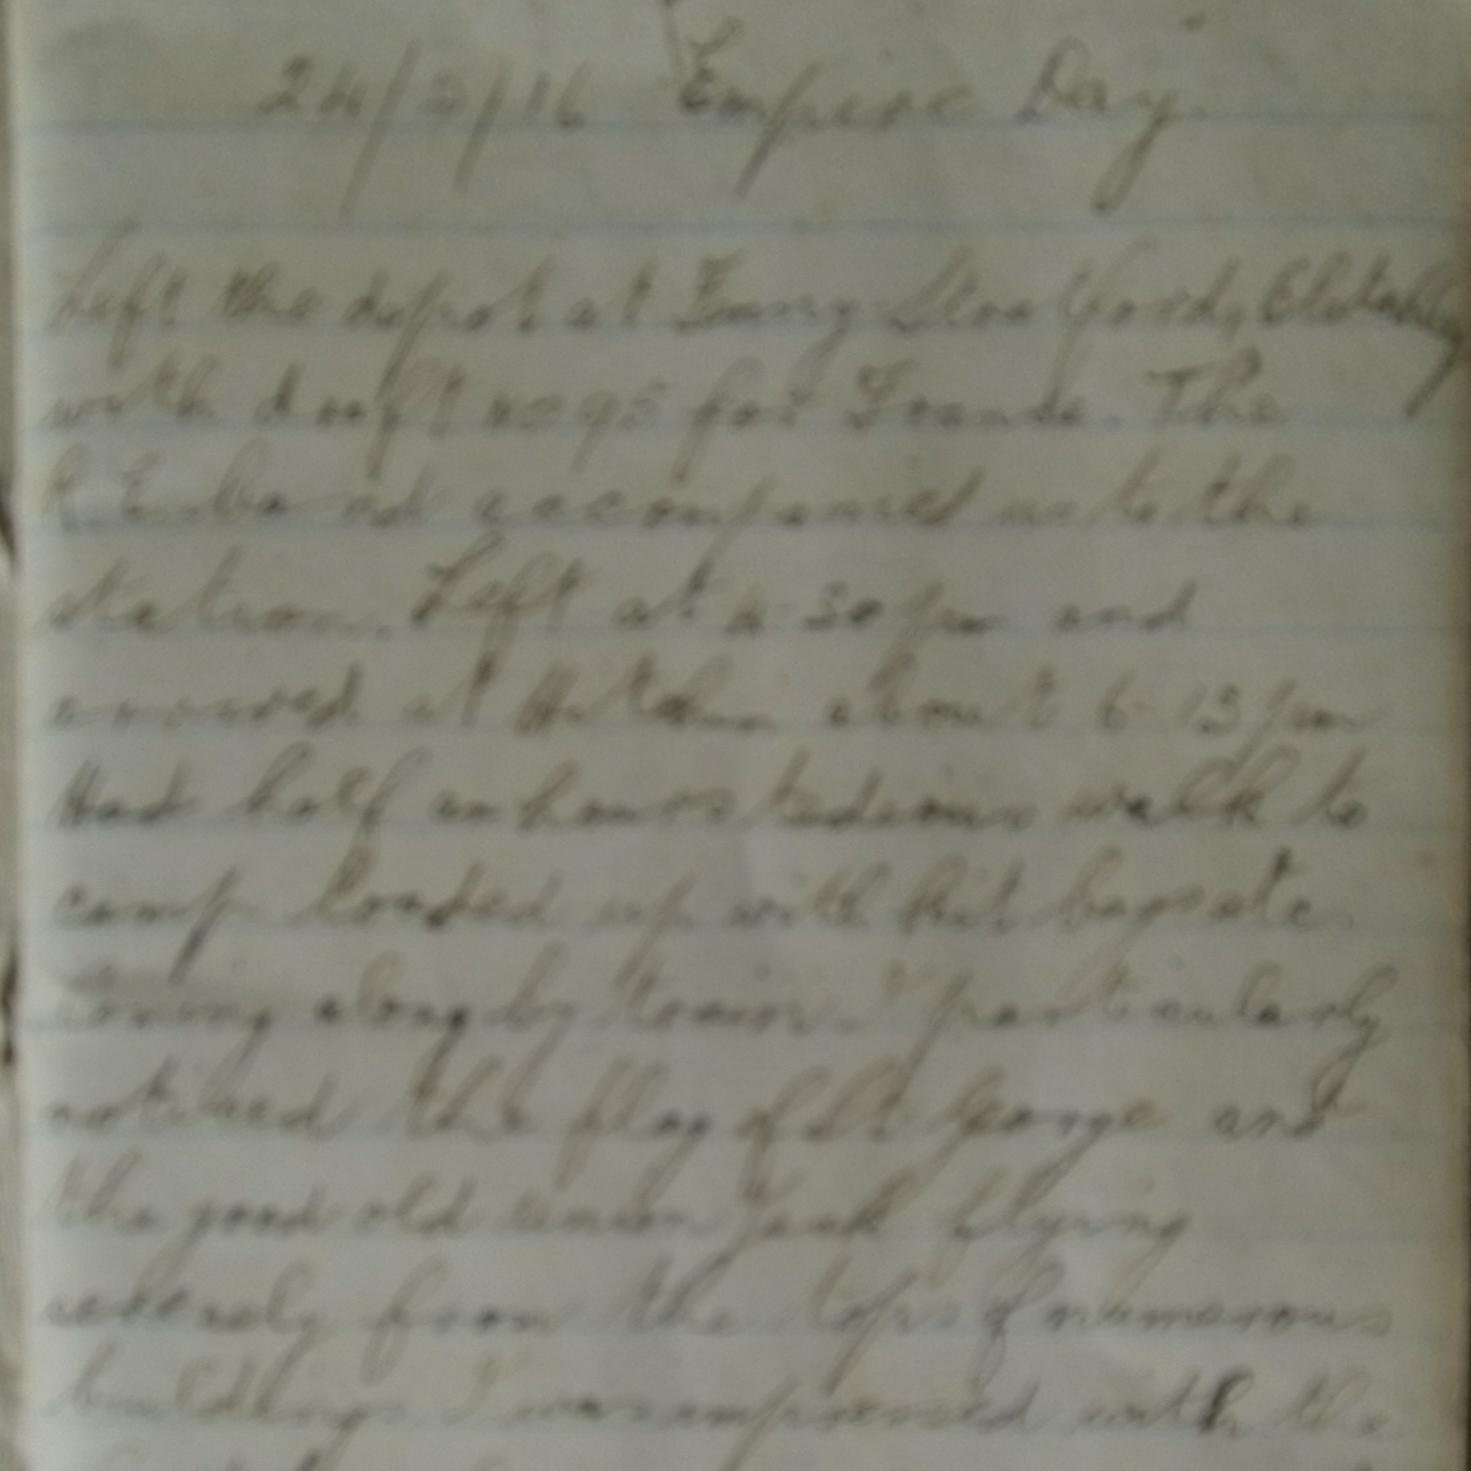 24/5/16 Empire Day.
Left the depot at Fenny Stratford, Bletchley
with draft no 95 for France. The
R.E. band accompanied us to the
station. Left at 4.30 pm and
arrived at Hitchin about 6.15 pm
Had half an hours tedious walk to
camp loaded up with kit bags etc.
Coming along by train I particularly
noticed the flag of St George and
the good old union jack flying
from the tops of numerous
buildings I was impressed with the